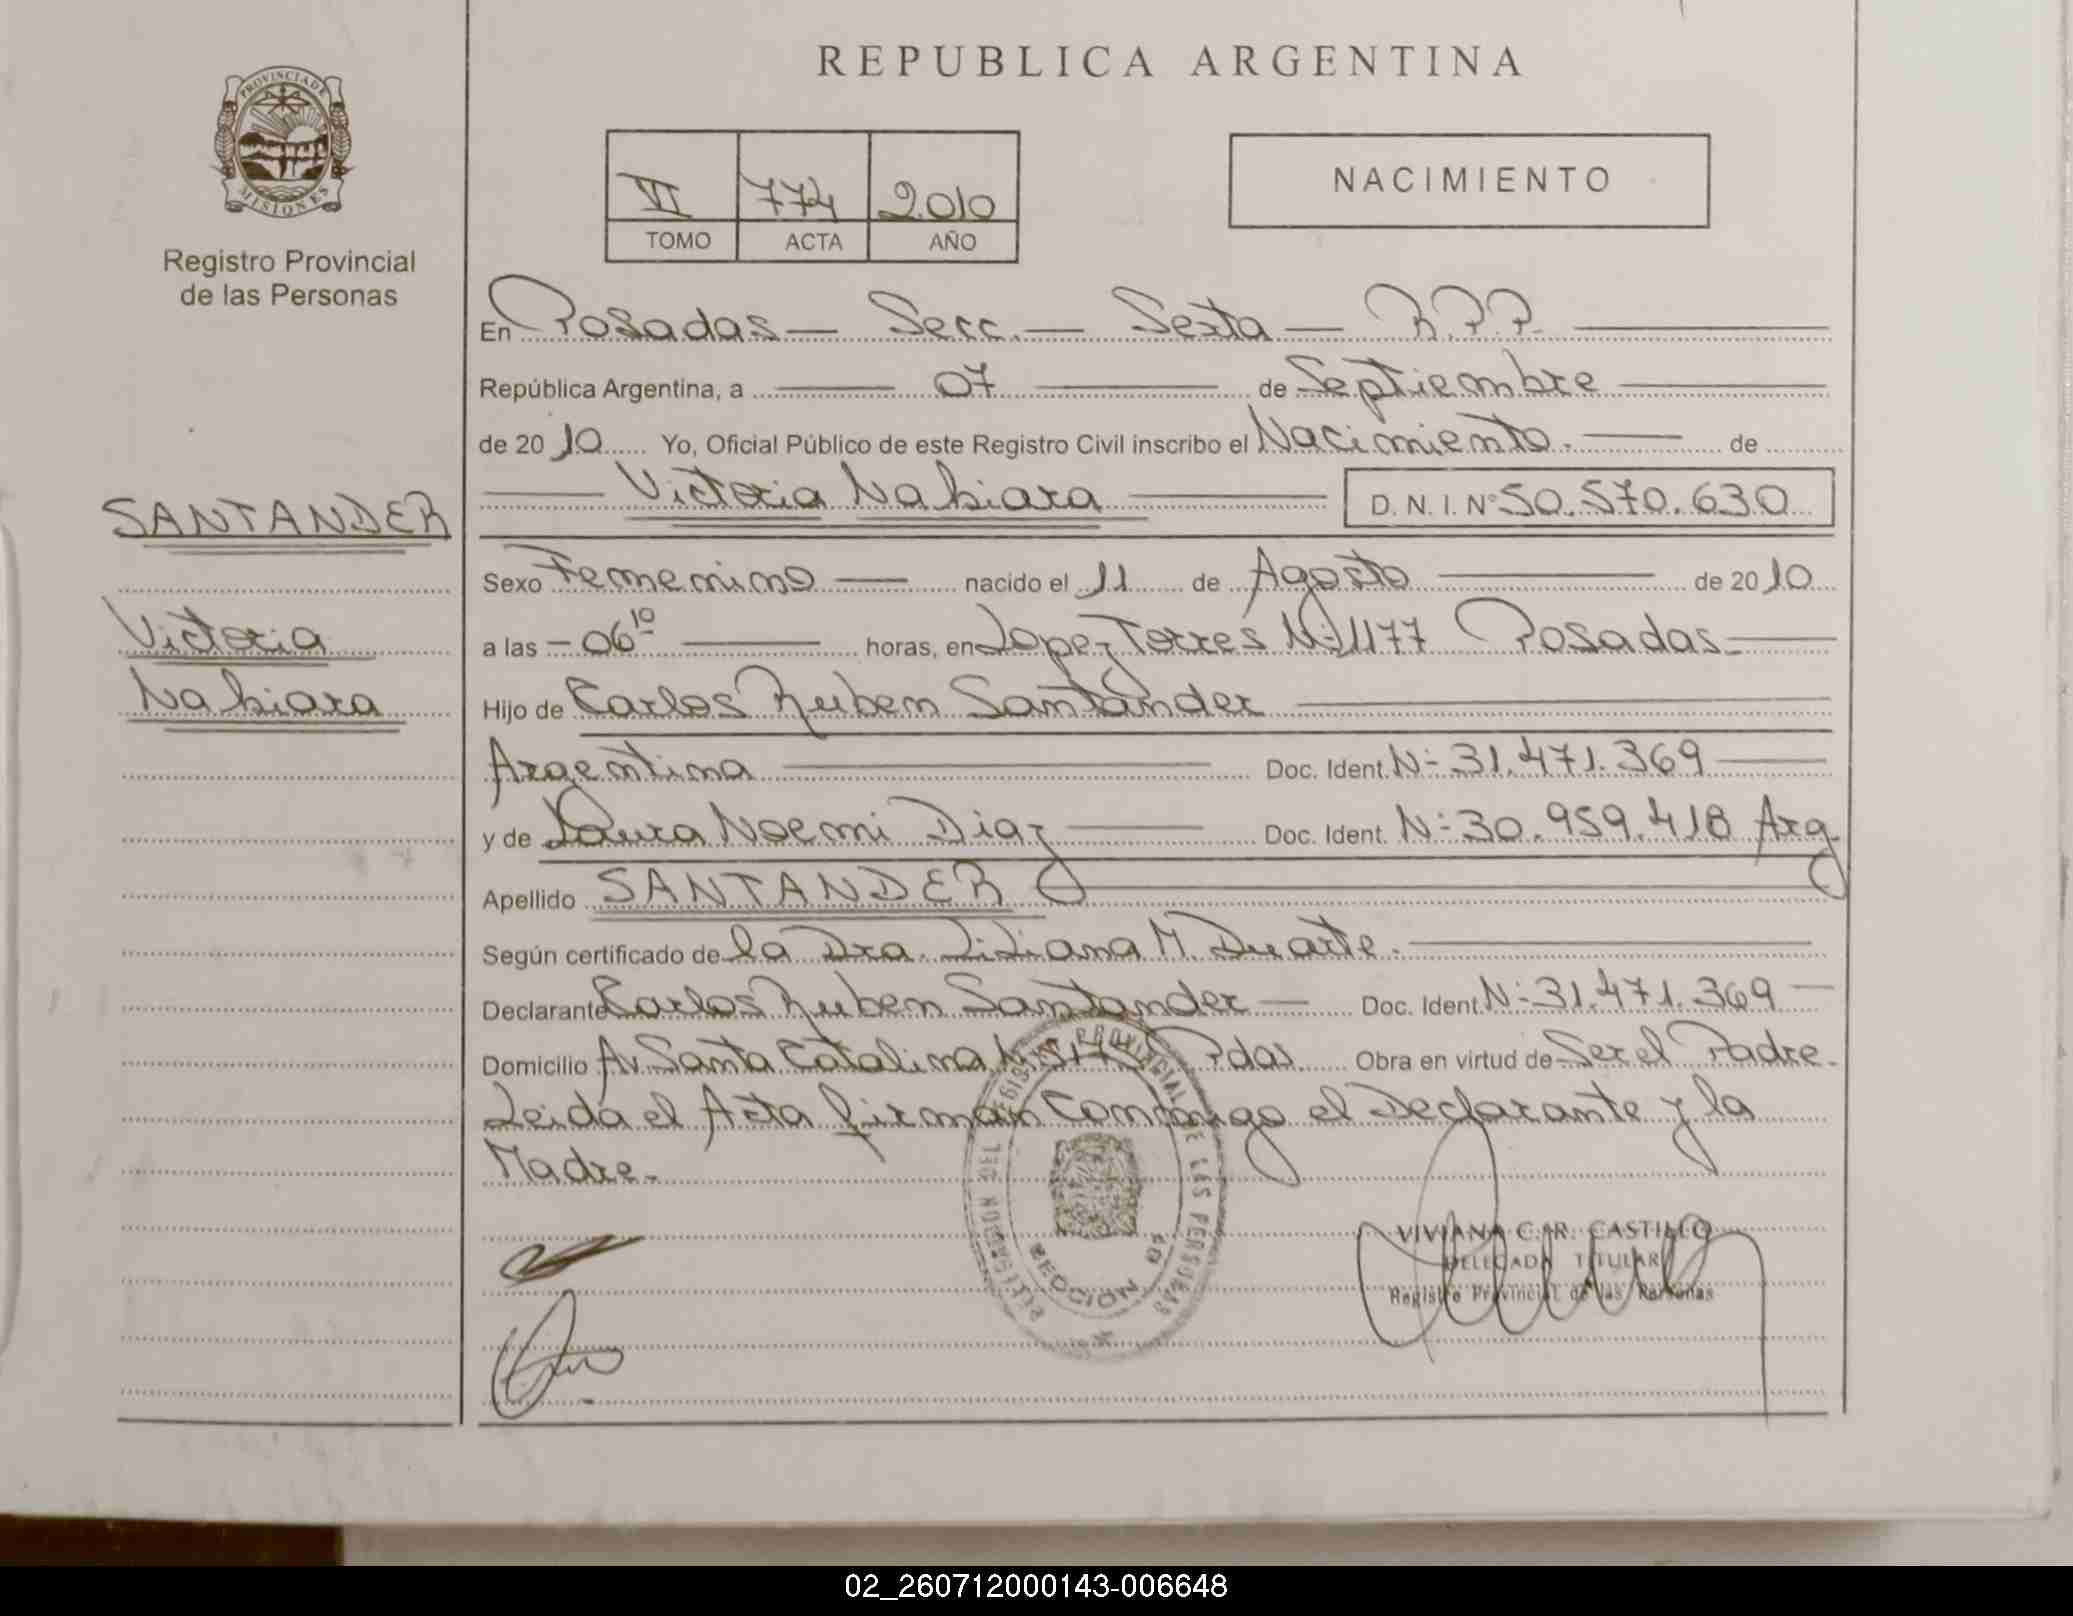 REPUBLICA ARGENTINA
PROVINCIA DE
MISIONES
Registro Provincial
de las Personas
VI 774 2010
TOMO ACTA AÑO
NACIMIENTO
En Posadas — Secc. — Sexta — R.P.P.
República Argentina, a 07 de Septiembre
de 2010 Yo, Oficial Público de este Registro Civil inscribo el Nacimiento. de
Victoria Nahiara D.N.I. Nº 50.570.630
SANTANDER
Victoria
Nahiara
Sexo Femenino nacido el 11 de Agosto de 2010
a las - 06 10 horas, en Lopez Torres Nº 1177 Posadas
Hijo de Carlos Ruben Santander
Argentina Doc. Ident. Nº 31.471.369
y de Laura Noemi Diaz Doc. Ident. Nº 30.959.418 Arg
Apellido SANTANDER
Según certificado de la Dra. Liliana M. Duarte.
Declarante Carlos Ruben Santander Doc. Ident. Nº 31.471.369
Domicilio Av. Santa Catalina Pdas. Obra en virtud de Ser el Padre.
Leida el Acta firman Conmigo el Declarante y la
Madre.
PROVINCIAL DE LAS PERSONAS
SECCION 6a
VIVIANA C. R. CASTILLO
DELEGADA TITULAR
Registro Provincial de las Personas
02_260712000143-006648